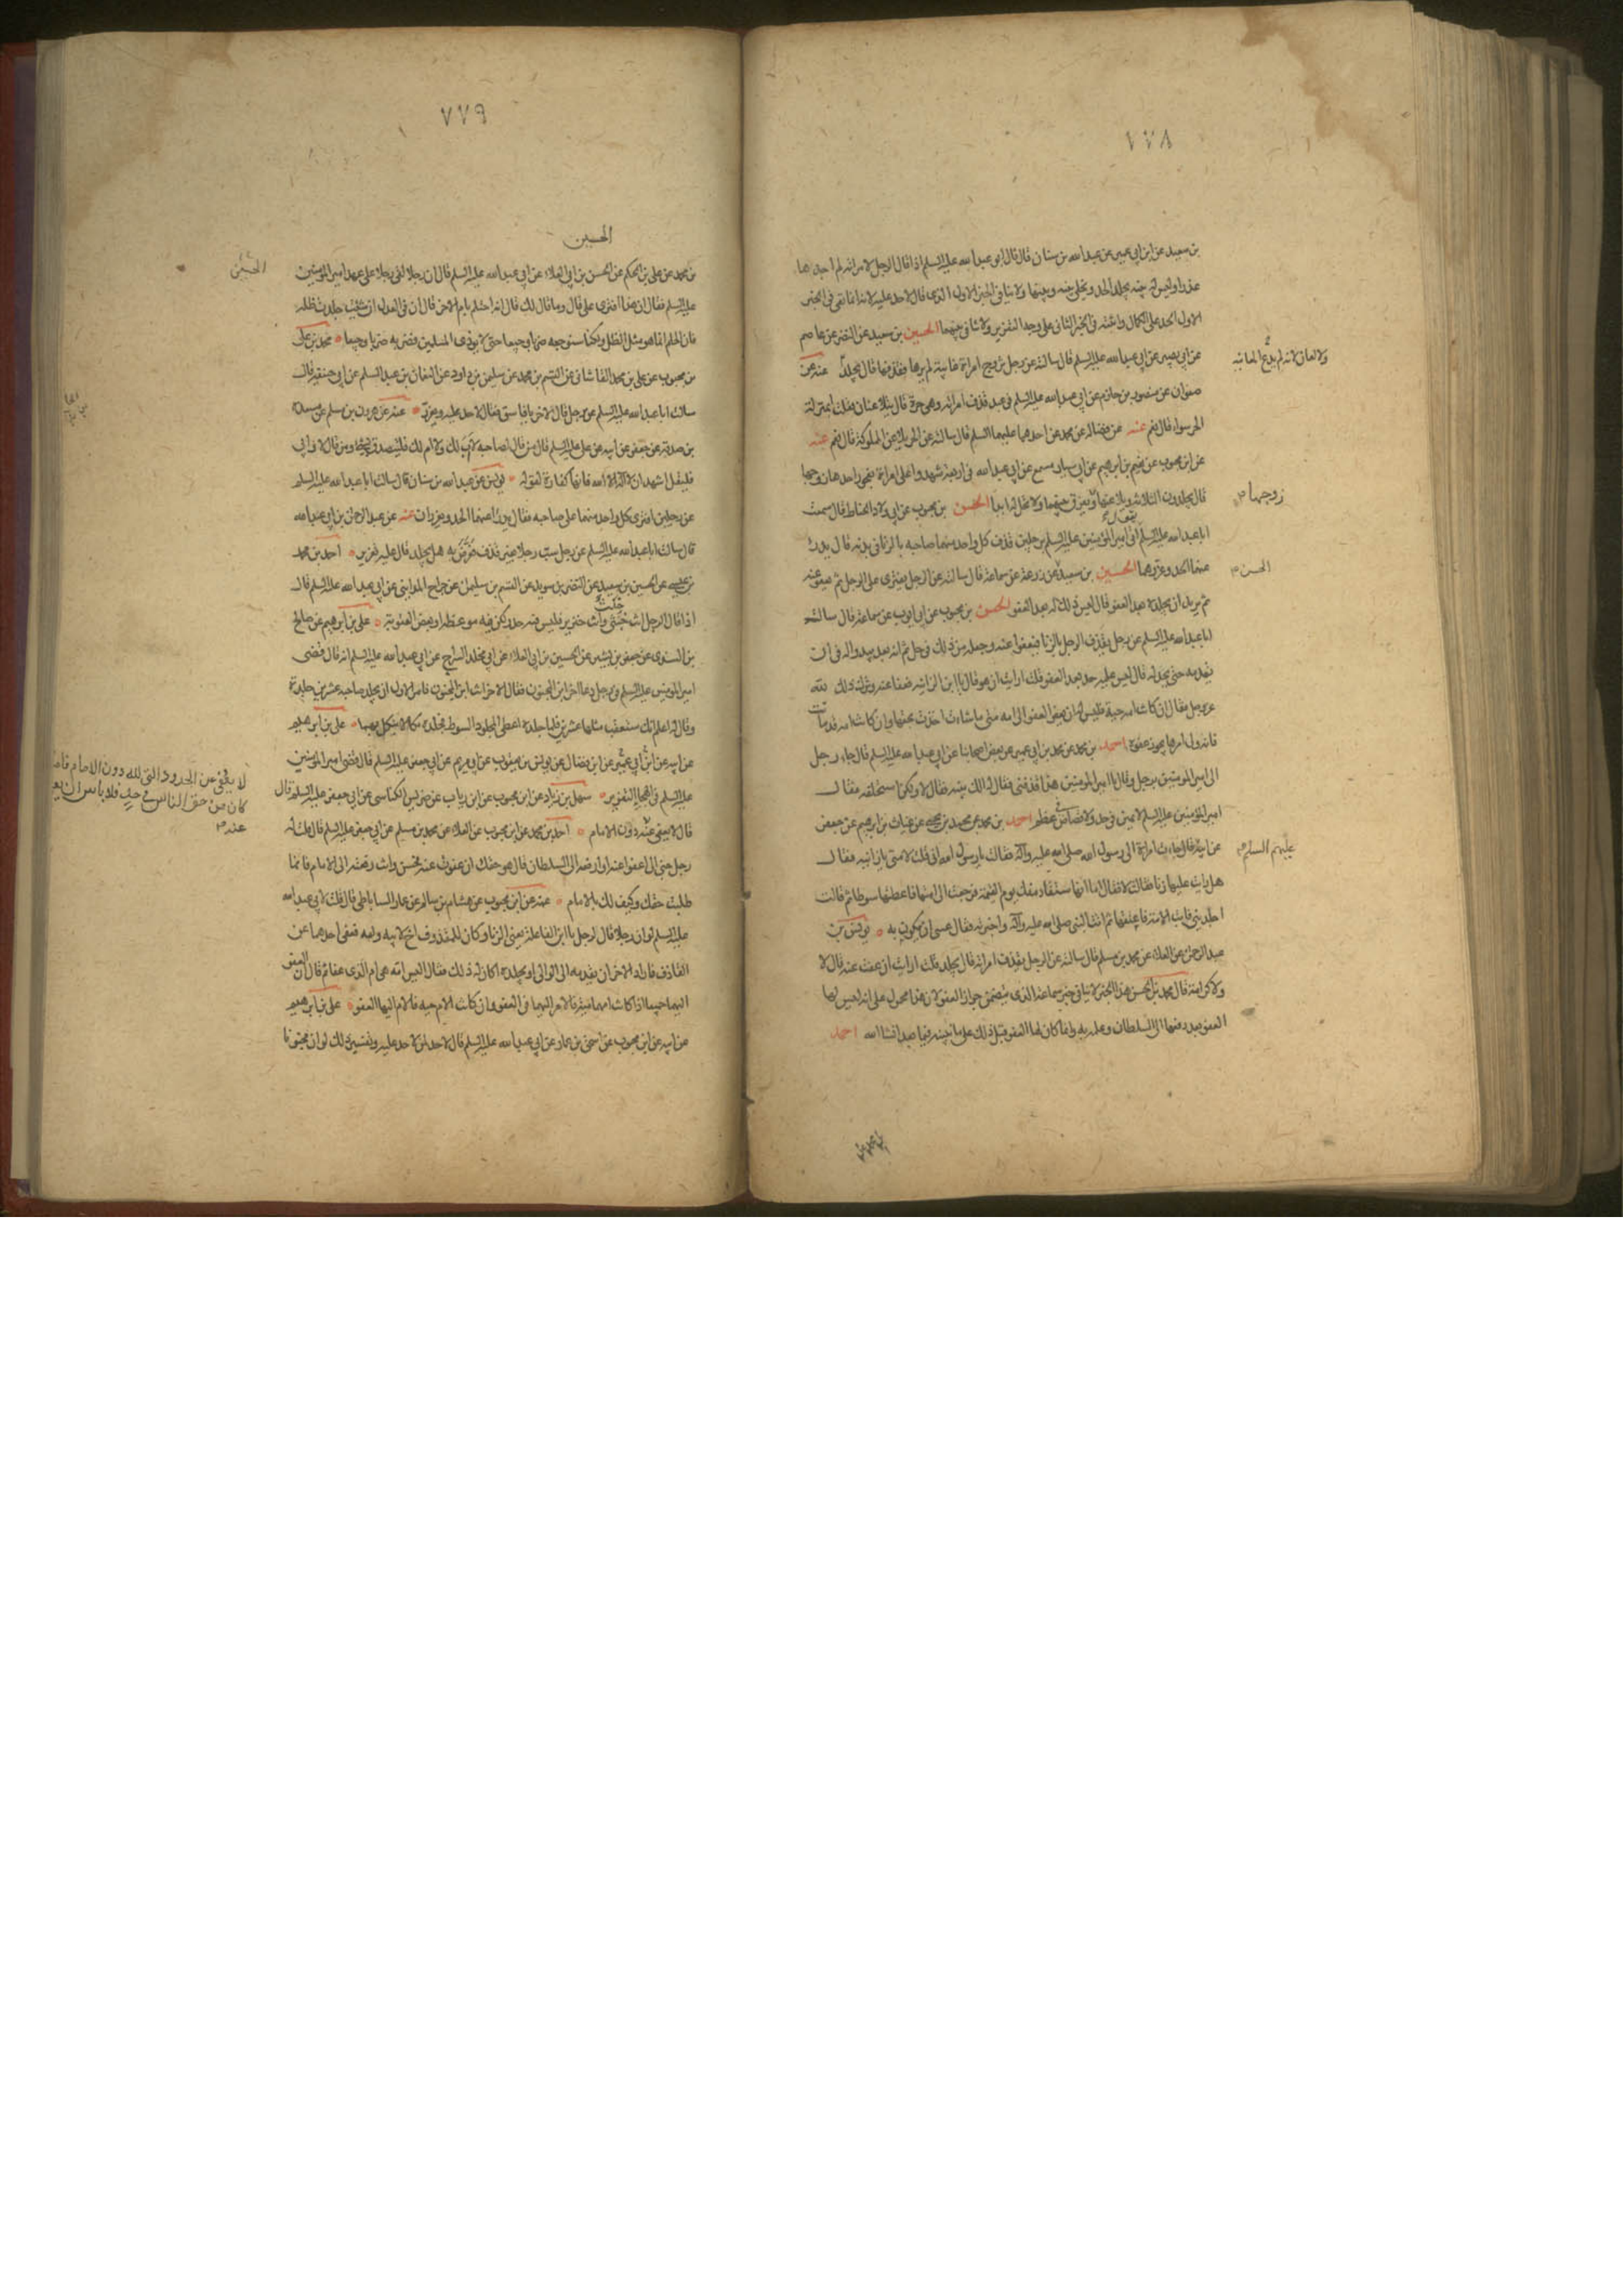 ٧٧٨
بن سعيد عن ابن ابي عمير عن عبد الله بن سنان قال قال ابو عبد الله عليه السلم اذا قال الرجل لامراته لم اجدك
عذراء وليس له بينة يجلد الحد ويخلى بينه وبينها ولا ينافي الخبر الاول الذي قال لا حد عليه لانه انما نفى في الخبر
الاول الحد على الكمال واثبته في الخبر الثاني على وجه التعزير ولا تنافي بينهما الحسين بن سعيد عن النضر عن عاصم
عن ابي بصير عن ابي عبد الله عليه السلم قال سالته عن رجل تزوج امراة غايبة لم يرها فقذفها قال يجلد عنه عن
ولا لعان لانه لم يدع المعاينه
صفوان عن منصور بن حازم عن ابي عبد الله عليه السلم في عبد قذف امراته وهي حرة قال يتلاعنان فقلت ابمنزلة
الحر سواء قال نعم عنه عن فضاله عن محمد عن احدهما عليهما السلم قال سالته عن الحر يلاعن المملوكة قال نعم عنه
عن ابن محبوب عن نعيم بن ابرهيم عن ابي سيار مسمع عن ابي عبد الله في اربعة شهدوا على امراة بفجور احدهم زوجها
قال يجلدون الثلاثة ويلاعنها ويفرق بينهما ولا تحل له ابدا الحسن بن محبوب عن ابي ولاد الحناط قال سمعت
زوجها
يقول
ابا عبد الله عليه السلم اتى امير المؤمنين عليه السلم برجلين قذف كل واحد منهما صاحبه بالزنا في بدنه قال فدرء
عنهما الحد وعزرهما الحسين بن سعيد عن زرعة عن سماعة قال سالته عن الرجل يفتري على الرجل ثم يعفو عنه
الحسن
ثم يريد ان يجلده بعد العفو قال ليس ذلك له بعد العفو الحسن بن محبوب عن ابي ايوب عن سماعة قال سالت
ابا عبد الله عليه السلم عن رجل يقذف الرجل بالزنا فيعفوا عنه وجعله من ذلك في حل ثم انه بعد يبدو له في ان
يقدمه حتى يجلده قال ليس عليه حد بعد العفو قلت ارايت ان هو قال يا ابن الزانيه فعفا عنه وترك ذلك لله
عز وجل فقال ان كانت امه حية فليس له ان يعفو العفو الى امه متى ما شاءت اخذت بحقها وان كانت امه قد ماتت
فانه ولي امرها يجوز عفوه احمد بن محمد عن محمد بن ابي عمير عن بعض اصحابنا عن ابي عبد الله عليه السلم قال جاء رجل
الى امير المؤمنين برجل وقال يا امير المؤمنين هذا قذفني فقال له الك بينة فقال لا ولكن استحلفه فقال
امير المؤمنين عليه السلم لا يمين في حد ولا قصاص في عظم احمد بن محمد عن محمد بن يحيى عن غياث بن ابرهيم عن جعفر
عن ابيه قال جاءت امراة الى رسول الله صلى الله عليه وآله فقالت يا رسول الله اني قلت لامتي يا زانيه فقال
عليهم السلام
هل رايت عليها زنا فقالت لا فقال اما انها ستقاد منك يوم القيمة فرجعت الى امتها فاعطتها سوطا ثم قالت
اجلديني فابت الامة فاعتقتها ثم اتت النبي صلى الله عليه وآله واخبرته فقال عسى ان يكون به يونس بن
عبد الرحمن عن العلاء عن محمد بن مسلم قال سالته عن الرجل يقذف امراته قال يجلد قلت ارايت ان عفت عنه قال لا
ولا كرامة قال محمد بن الحسن هذا الخبر لا ينافي خبر سماعة الذي يتضمن جواز العفو لان هذا محمول على انه ليس لها
العفو بعد رفعها الى السلطان وعلمه به وانما كان لها العفو قبل ذلك على ما نبينه فيما بعد انشا الله احمد
بن محمد عن
٧٧٩
الحسين
بن محمد عن علي بن الحكم عن الحسن بن ابي العلاء عن ابي عبد الله عليه السلم قال ان رجلا لقي رجلا على عهد امير المؤمنين
الحسين
عليه السلم فقال ان هذا افترى علي قال وما قال لك قال انه احتلم بام الاخر قال ان في العدل ان شئت جلدت ظله
فان الحلم انما هو مثل الظل ولكنا سنوجعه ضربا وجيعا حتى لا يؤذي المسلمين فضربه ضربا وجيعا محمد بن علي
بن محبوب عن علي بن محمد القاساني عن القسم بن محمد عن سليمن بن داود عن النعمان بن عبد السلم عن ابي حنيفه قال
سالت ابا عبد الله عليه السلم عن رجل قال لاخر يا فاسق فقال لا حد عليه ويعزر عنه عن هرون بن مسلم عن مسعدة
بن صدقة عن جعفر عن ابيه عن علي عليه السلم قال من قال لصاحبه لا اب لك ولا ام لك فليتصدق بشيء ومن قال لا وابي
فليقل اشهد ان لا اله الا الله فانها كفارة لقوله يونس عن عبد الله بن سنان قال سالت ابا عبد الله عليه السلم
عن رجلين افترى كل واحد منهما على صاحبه فقال يدرأ عنهما الحد ويعزران عنه عن عبد الرحمن بن ابي عبد الله
قال سالت ابا عبد الله عليه السلم عن رجل سب رجلا بغير قذف عرض به هل يجلد قال عليه تعزير احمد بن محمد
بن عيسى عن الحسين بن سعيد عن النضر بن سويد عن القسم بن سليمن عن جراح المدايني عن ابي عبد الله عليه السلم قال
اذا قال الرجل انت خنثى وانت خنزير فليس فيه حد ولكن فيه موعظه وبعض العقوبة علي بن ابرهيم عن صالح
بن السندي عن جعفر بن بشير عن الحسين بن ابي العلاء عن ابي مخلد السراج عن ابي عبد الله عليه السلم انه قال قضى
امير المؤمنين عليه السلم في رجل دعا اخر ابن المجنون فقال الاخر انت ابن المجنون فامر الاول ان يجلد صاحبه عشرين جلدة
وقال له اعلم انك ستعقب مثلها عشرين فلما جلده اعطى المجلود السوط فجلده نكالا ينكل بهما علي بن ابرهيم
عن ابيه عن ابن ابي عمير عن ابن فضال عن يونس بن يعقوب عن ابي مريم عن ابي جعفر عليه السلم قال قضى امير المؤمنين
عليه السلم في الهجاء التعزير سهل بن زياد عن ابن محبوب عن ابن رياب عن ضريس الكناسي عن ابي جعفر عليه السلم قال
لا يعفى عن الحدود التي لله دون الامام فاما
كان من حق الناس في حد فلا باس ان يعفى
عنه
قال لا يعفى عنه دون الامام احمد بن محمد عن ابن محبوب عن العلاء عن محمد بن مسلم عن ابي جعفر عليه السلم قال قلت له
رجل جنى الي اعفو عنه او ارفعه الى السلطان قال هو حقك ان عفوت عنه فحسن وان رفعته الى الامام فانما
طلبت حقك وكيف لك بالامام عنه عن ابن محبوب عن هشام بن سالم عن عمار الساباطي قال قلت لابي عبد الله
عليه السلم لو ان رجلا قال لرجل يا ابن الفاعلة يعني الزنا وكان للمقذوف اخ لابيه وامه فعفى احدهما عن
القاذف فاراد الاخر ان يقدمه الى الوالي ويجلده اكان له ذلك فقال اليس امه هي ام الذي عفا ثم قال ان العفو
اليهما جميعا اذا كانت امهما ميتة فالامر اليهما في العفو وان كانت الام حيه فالامر اليها العفو علي بن ابرهيم
عن ابيه عن ابن محبوب عن اسحق بن عمار عن ابي عبد الله عليه السلم قال لا حد لمن لا حد عليه وتفسير ذلك لو ان مجنونا